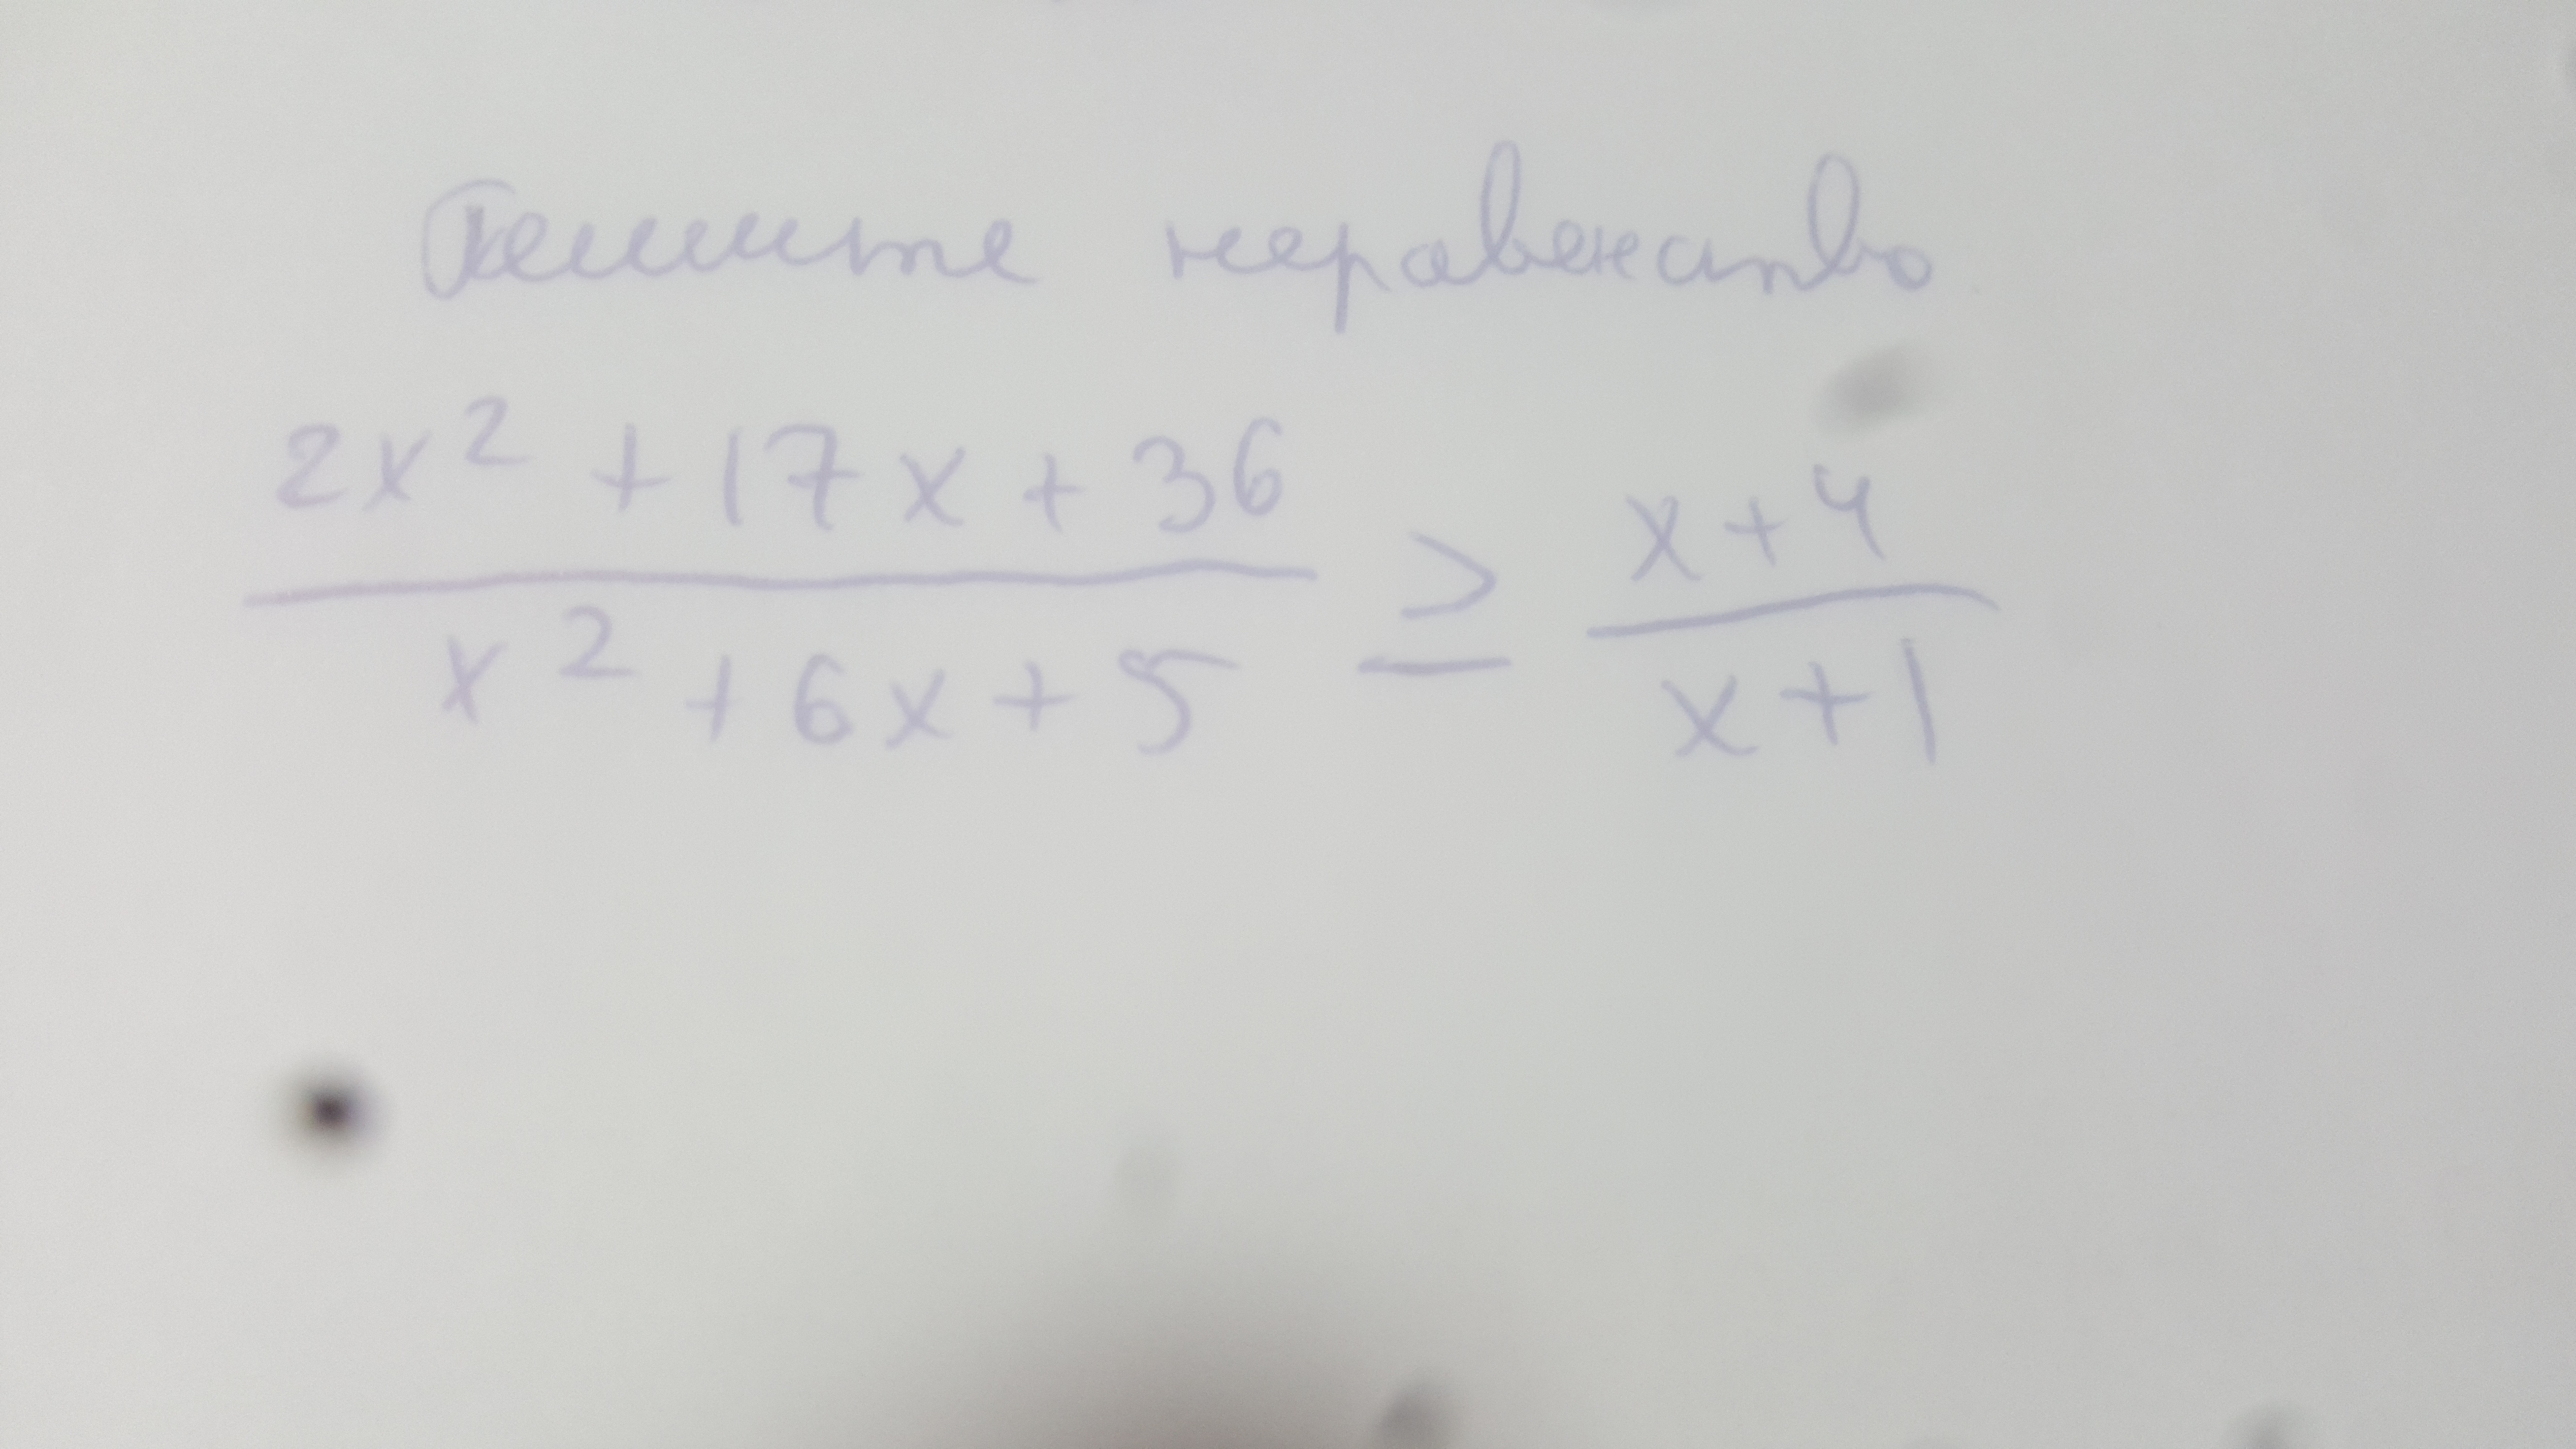 Решите неравенство
2x² + 17x + 36 / x² + 6x + 5 ≥ x + 4 / x + 1